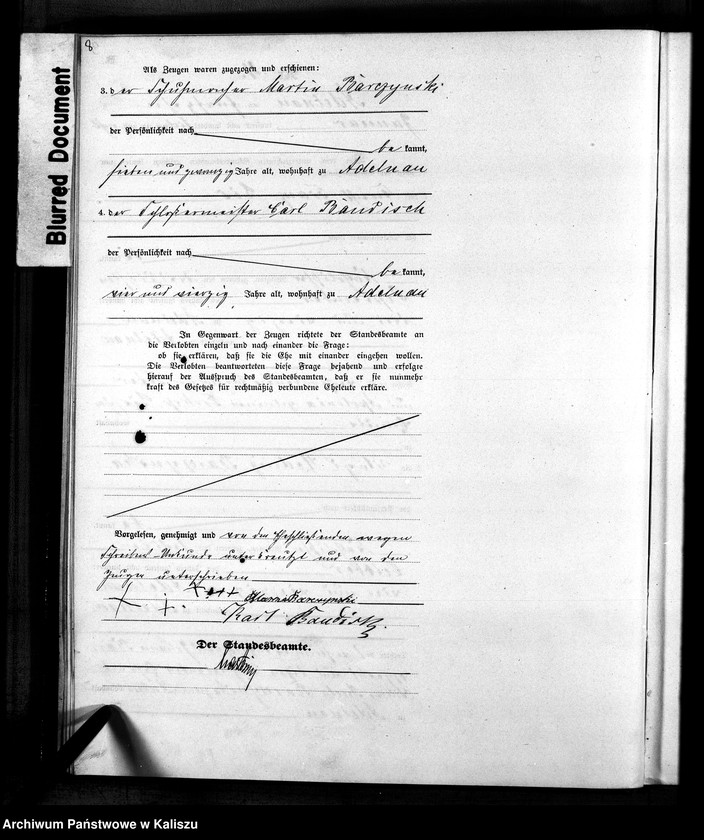 8
Blurred Document
Als Zeugen waren zugezogen und erschienen:
3. der Schuhmacher Martin Barczynski
der Persönlichkeit nach
be kannt,
sieben und zwanzig Jahre alt, wohnhaft zu Adelnau
4. der Schlossermeister Carl Bandisch
der Persönlichkeit nach
be kannt,
vier und vierzig Jahre alt, wohnhaft zu Adelnau
In Gegenwart der Zeugen richtete der Standesbeamte an
die Verlobten einzeln und nach einander die Frage:
ob sie erklären, daß sie die Ehe mit einander eingehen wollen.
Die Verlobten beantworteten diese Frage bejahend und erfolgte
hierauf der Ausspruch des Standesbeamten, daß er sie nunmehr
kraft des Gesetzes für rechtmäßig verbundene Eheleute erkläre.
Vorgelesen, genehmigt und von den Eheschließenden wegen
Schreibens Unkunde unterkreuzt und von den
Zeugen unterschrieben
+ + +++ Barczynski
Karl
Der Standesbeamte.
Archiwum Państwowe w Kaliszu